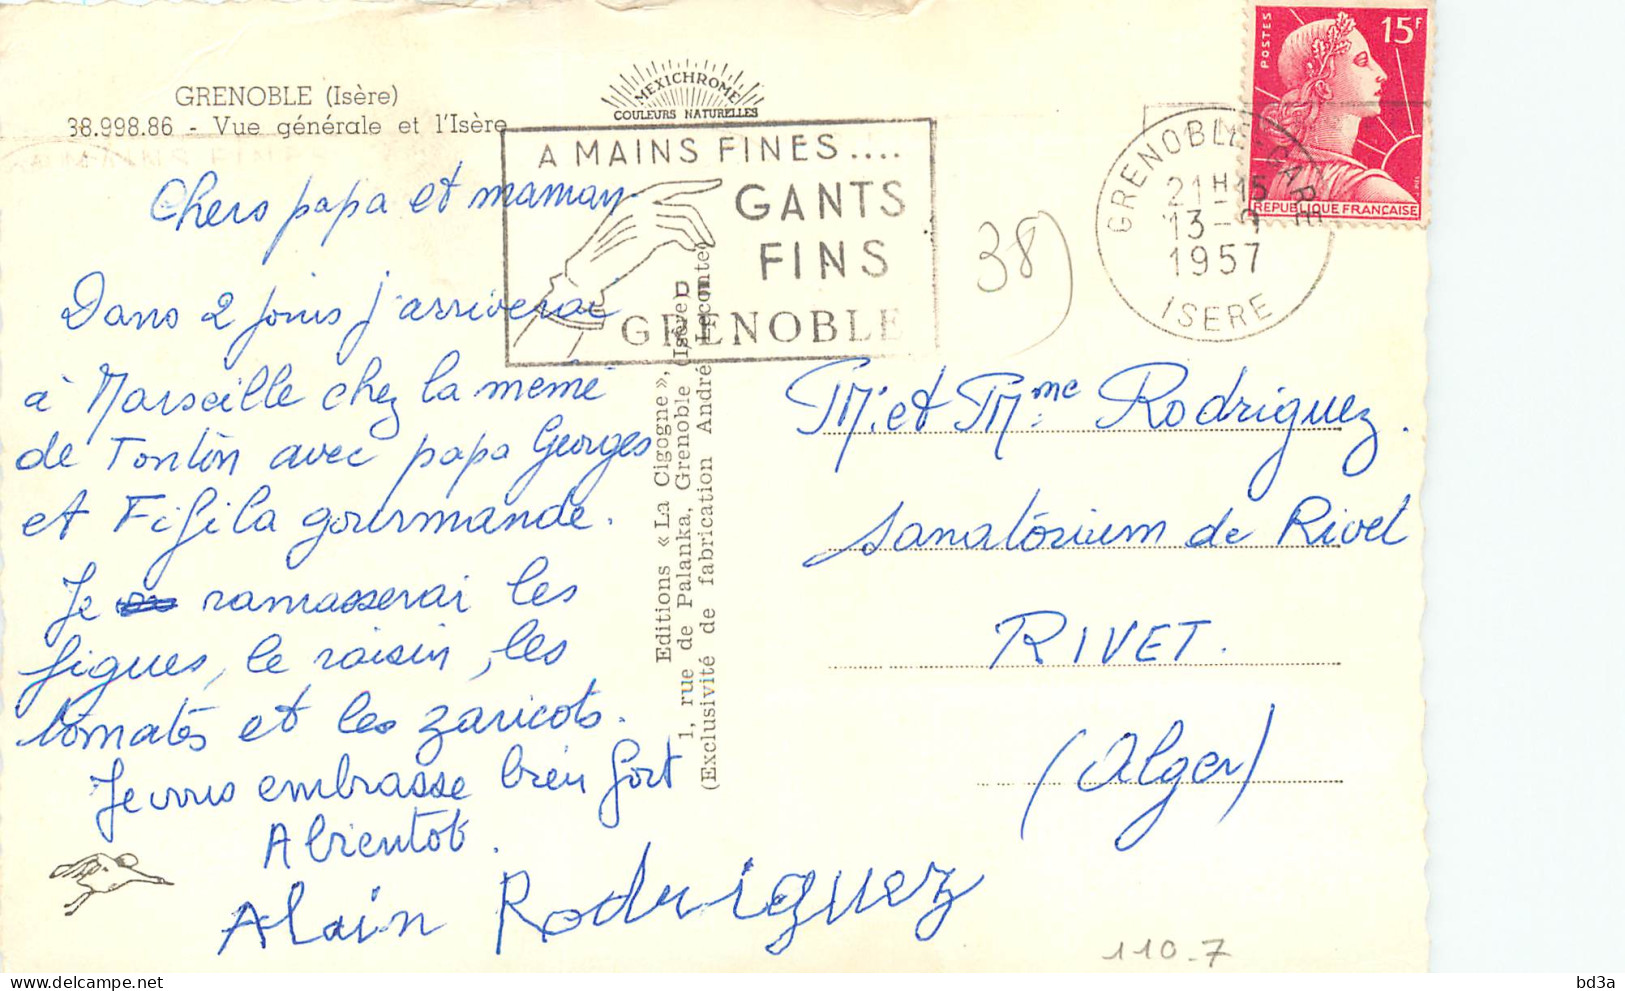 GRENOBLE (Isère)
38.998.86 - Vue générale et l'Isère
MEXICHROME
COULEURS NATURELLES
A MAINS FINES....
GANTS
FINS
GRENOBLE
POSTES
15F
REPUBLIQUE FRANÇAISE
GRENOBLE-GARE
21H15
13-9
1957
ISERE
38)
Chers papa et maman
Dans 2 jours j'arriverai
à Marseille chez la mémé
de Tonton avec papa Georges
et Fifi la gourmande.
Je ramasserai les
figues, le raisin, les
tomates et les zaricots.
Je vous embrasse bien fort
A bientôt.
Alain Rodriguez
Editions « La Cigogne »,
1, rue de Palanka, Grenoble (Isère)
(Exclusivité de fabrication André Leconte)
M. et Mme Rodriguez.
Sanatorium de Rivet
RIVET.
(Alger)
110-7
bd3a